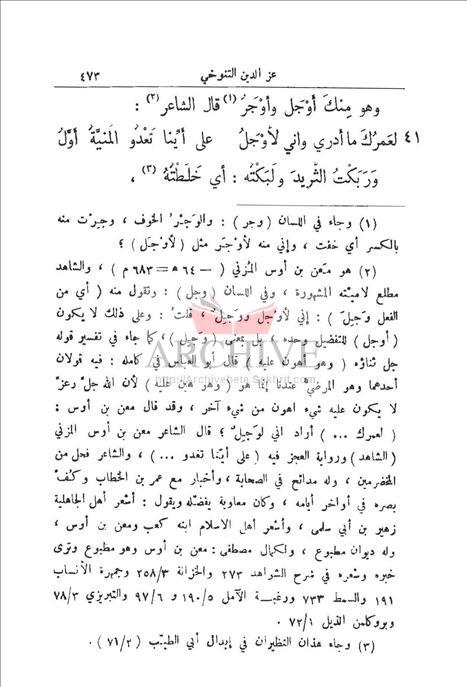 عز الدين التنوخي ٤٧٣
وهو مِنكَ أوْجَل وأوْجَرُ (١) قال الشاعر (٢) :
٤١ لعَمرُكَ ما أدري واني لأوْجلُ على أيِّنا تَعْدُو المنيَّةُ أوَّلُ
وَرَبَكْتُ الثَّريدَ ولَبَكْتُه : أي خَلَطْتُهُ (٣) ،
(١) وجاء في اللسان ( وجر ) : والوَجَرُ الخوف ، وجِرْت منه
بالكسر أي خفت ، وإني منه لأوْجَر مثل ( لأوْجَل ) ؟
(٢) هو مَعْن بن أوس المُزَني ( — ٦٤ هـ = ٦٨٣ م ) ، والشاهد
مطلع لاميته المشهورة ، وفي اللسان ( وجل ) : وتقول منه ( أي من
الفعل وَجِلَ ) : إني لأوْجَل ووَجِل ، قلت : وعلى ذلك لا يكون
( أوجل ) للتفضيل وحده ، بل بمعنى ( وَجِل ) ، كما جاء في تفسير قوله
جل ثناؤه ( وهو أهون عليه ) قال أبو العباس في كامله : فيه قولان
أحدهما وهو المرضيّ عندنا إنما هو ( وهو هين عليه ) لأن الله جلّ وعزّ
لا يكون عليه شيء اهون من شيء آخر ، وقد قال معن بن أوس :
( لعمرك ... ) أراد اني لوَجِلٌ ؟ قال الشاعر معن بن أوس المزني
( الشاهد ) ورواية العجز فيه ( على أيّنا تغدو ... ) ، والشاعر فحل من
المخضرمين ، وله مدائح في الصحابة ، وأخبار مع عمر بن الخطاب وكُفّ
بصره في أواخر أيامه ، وكان معاوية يفضّله ويقول : أشعر أهل الجاهلية
زهير بن أبي سلمى ، وأشعر أهل الاسلام ابنه كعب ومعن بن أوس ،
وله ديوان مطبوع ، ولكمال مصطفى : معن بن أوس وهو مطبوع وترى
خبره وشعره في شرح الشواهد ٢٧٣ والخزانة ٢٥٨/٣ وجمهرة الأنساب
١٩١ والسمط ٧٣٣ ورغبة الآمل ١٩٠/٥ و ٩٧/٦ والتبريزي ٧٨/٣
وبروكلمن الذيل ٧٢/١ .
(٣) وجاء هذان النظيران في إبدال أبي الطيّب ( ٧١/٢ ) .
ARCHIVE
http://Archivebeta.Sakhrit.com